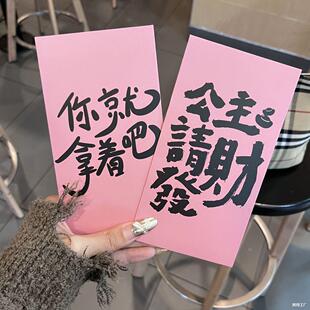 你就
拿着吧
公主
請發財